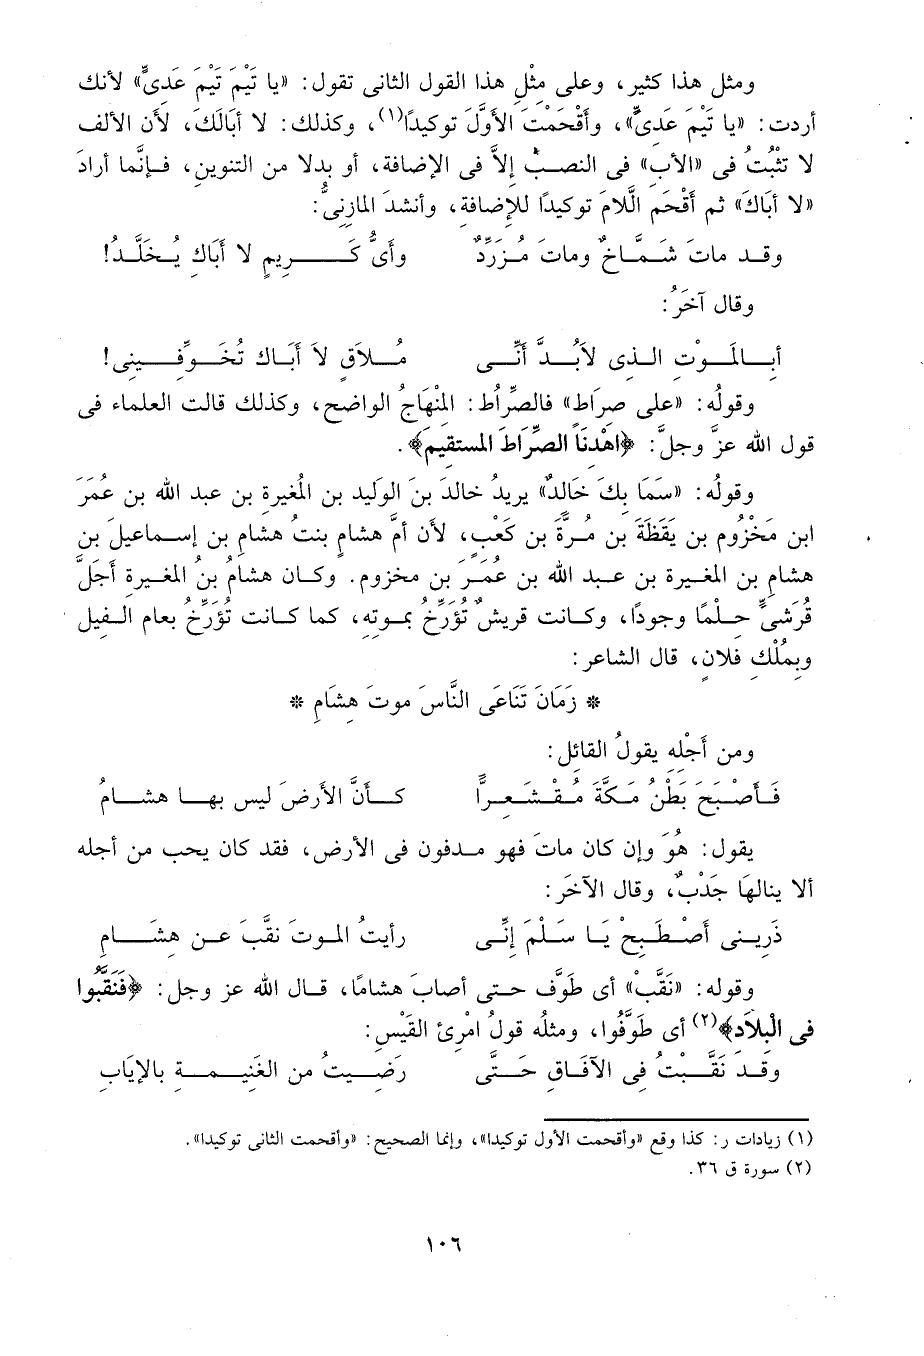 ومثل هذا كثير، وعلى مثْلِ هذا القول الثانى تقول: «يا تَيْمَ تَيْمَ عَدِىٍّ» لأنك
أردت: «يا تَيْمَ عَدِىٍّ»، وأقْحَمْتَ الأوَّلَ توكيدًا(١)، وكذلك: لا أبالَكَ، لأن الألف
لا تثْبُتُ فى «الأب» فى النصبِ إلاَّ فى الإضافة، أو بدلا من التنوين، فإنَّما أرادَ
«لا أبَاكَ» ثم أقْحَم الَّلامَ توكيدًا للإضافة، وأنشدَ المازِنىُّ:
وقد ماتَ شَمَّاخٌ وماتَ مُزَرِّدٌ وأىُّ كَرِيمٍ لا أَبَاكَ يُخَلَّدُ!
وقال آخَرُ:
أبِالمَوْتِ الذى لابُدَّ أنِّى مُلاَقٍ لاَ أَبَاك تُخَوِّفِينِى!
وقولُه: «على صِرَاط» فالصِّرَاُط: المِنْهَاجُ الواضح، وكذلك قالت العلماء فى
قول الله عزَّ وجلَّ: ﴿اهْدِنَا الصِّرَاطَ المستقيمَ﴾.
وقولُه: «سَمَا بِكَ خَالدٌ» يريدُ خالدَ بنَ الوليد بن المُغيرة بن عبد الله بن عُمَرَ
ابن مَخْزُومِ بن يَقَظَةَ بن مُرَّةَ بن كَعْبٍ، لأن أمَّ هشامٍ بنتُ هشامِ بن إسماعيلَ بن
هشامِ بن المغيرة بن عبد الله بن عُمَرَ بن مخزوم. وكان هشامُ بنُ المغيرة أجَلَّ
قُرَشِىٍّ حِلْمًا وجودًا، وكانت قريشٌ تُؤَرِّخُ بموته، كما كانت تُؤَرِّخُ بعام الفيل
وبِمُلْكِ فلانٍ، قال الشاعر:
* زَمَانَ تَنَاعَى النَّاسَ موتَ هِشَامِ *
ومن أجْلِهِ يقولُ القائل:
فَأصْبَحَ بَطْنُ مَكَّةَ مُقْشَعِرًّا كأنَّ الأرضَ ليس بها هشامُ
يقول: هُوَ وإن كان ماتَ فهو مدفون فى الأرض، فقد كان يجب من أجله
ألا ينالهَا جَدْبٌ، وقال الآخَر:
ذَرِينى أصْطَبِحْ يَا سَلْمَ إنِّى رأيتُ الموتَ نقَّبَ عن هِشَامِ
وقوله: «نَقَّبَ» أى طَوَّف حتى أصابَ هشامًا، قال الله عز وجل: ﴿فَنَقَّبُوا
فِى الْبِلاَدِ﴾(٢) أى طَوَّفُوا، ومثلُه قولُ امْرِئِ القَيْسِ:
وقَدْ نَقَّبْتُ فِى الآفَاقِ حَتَّى رَضِيتُ من الغَنِيمَةِ بالإيَابِ
(١) زيادات ر: كذا وقع «وأقحمت الأول توكيدا»، وإنما الصحيح: «وأقحمت الثانى توكيدا».
(٢) سورة ق ٣٦.
١٠٦